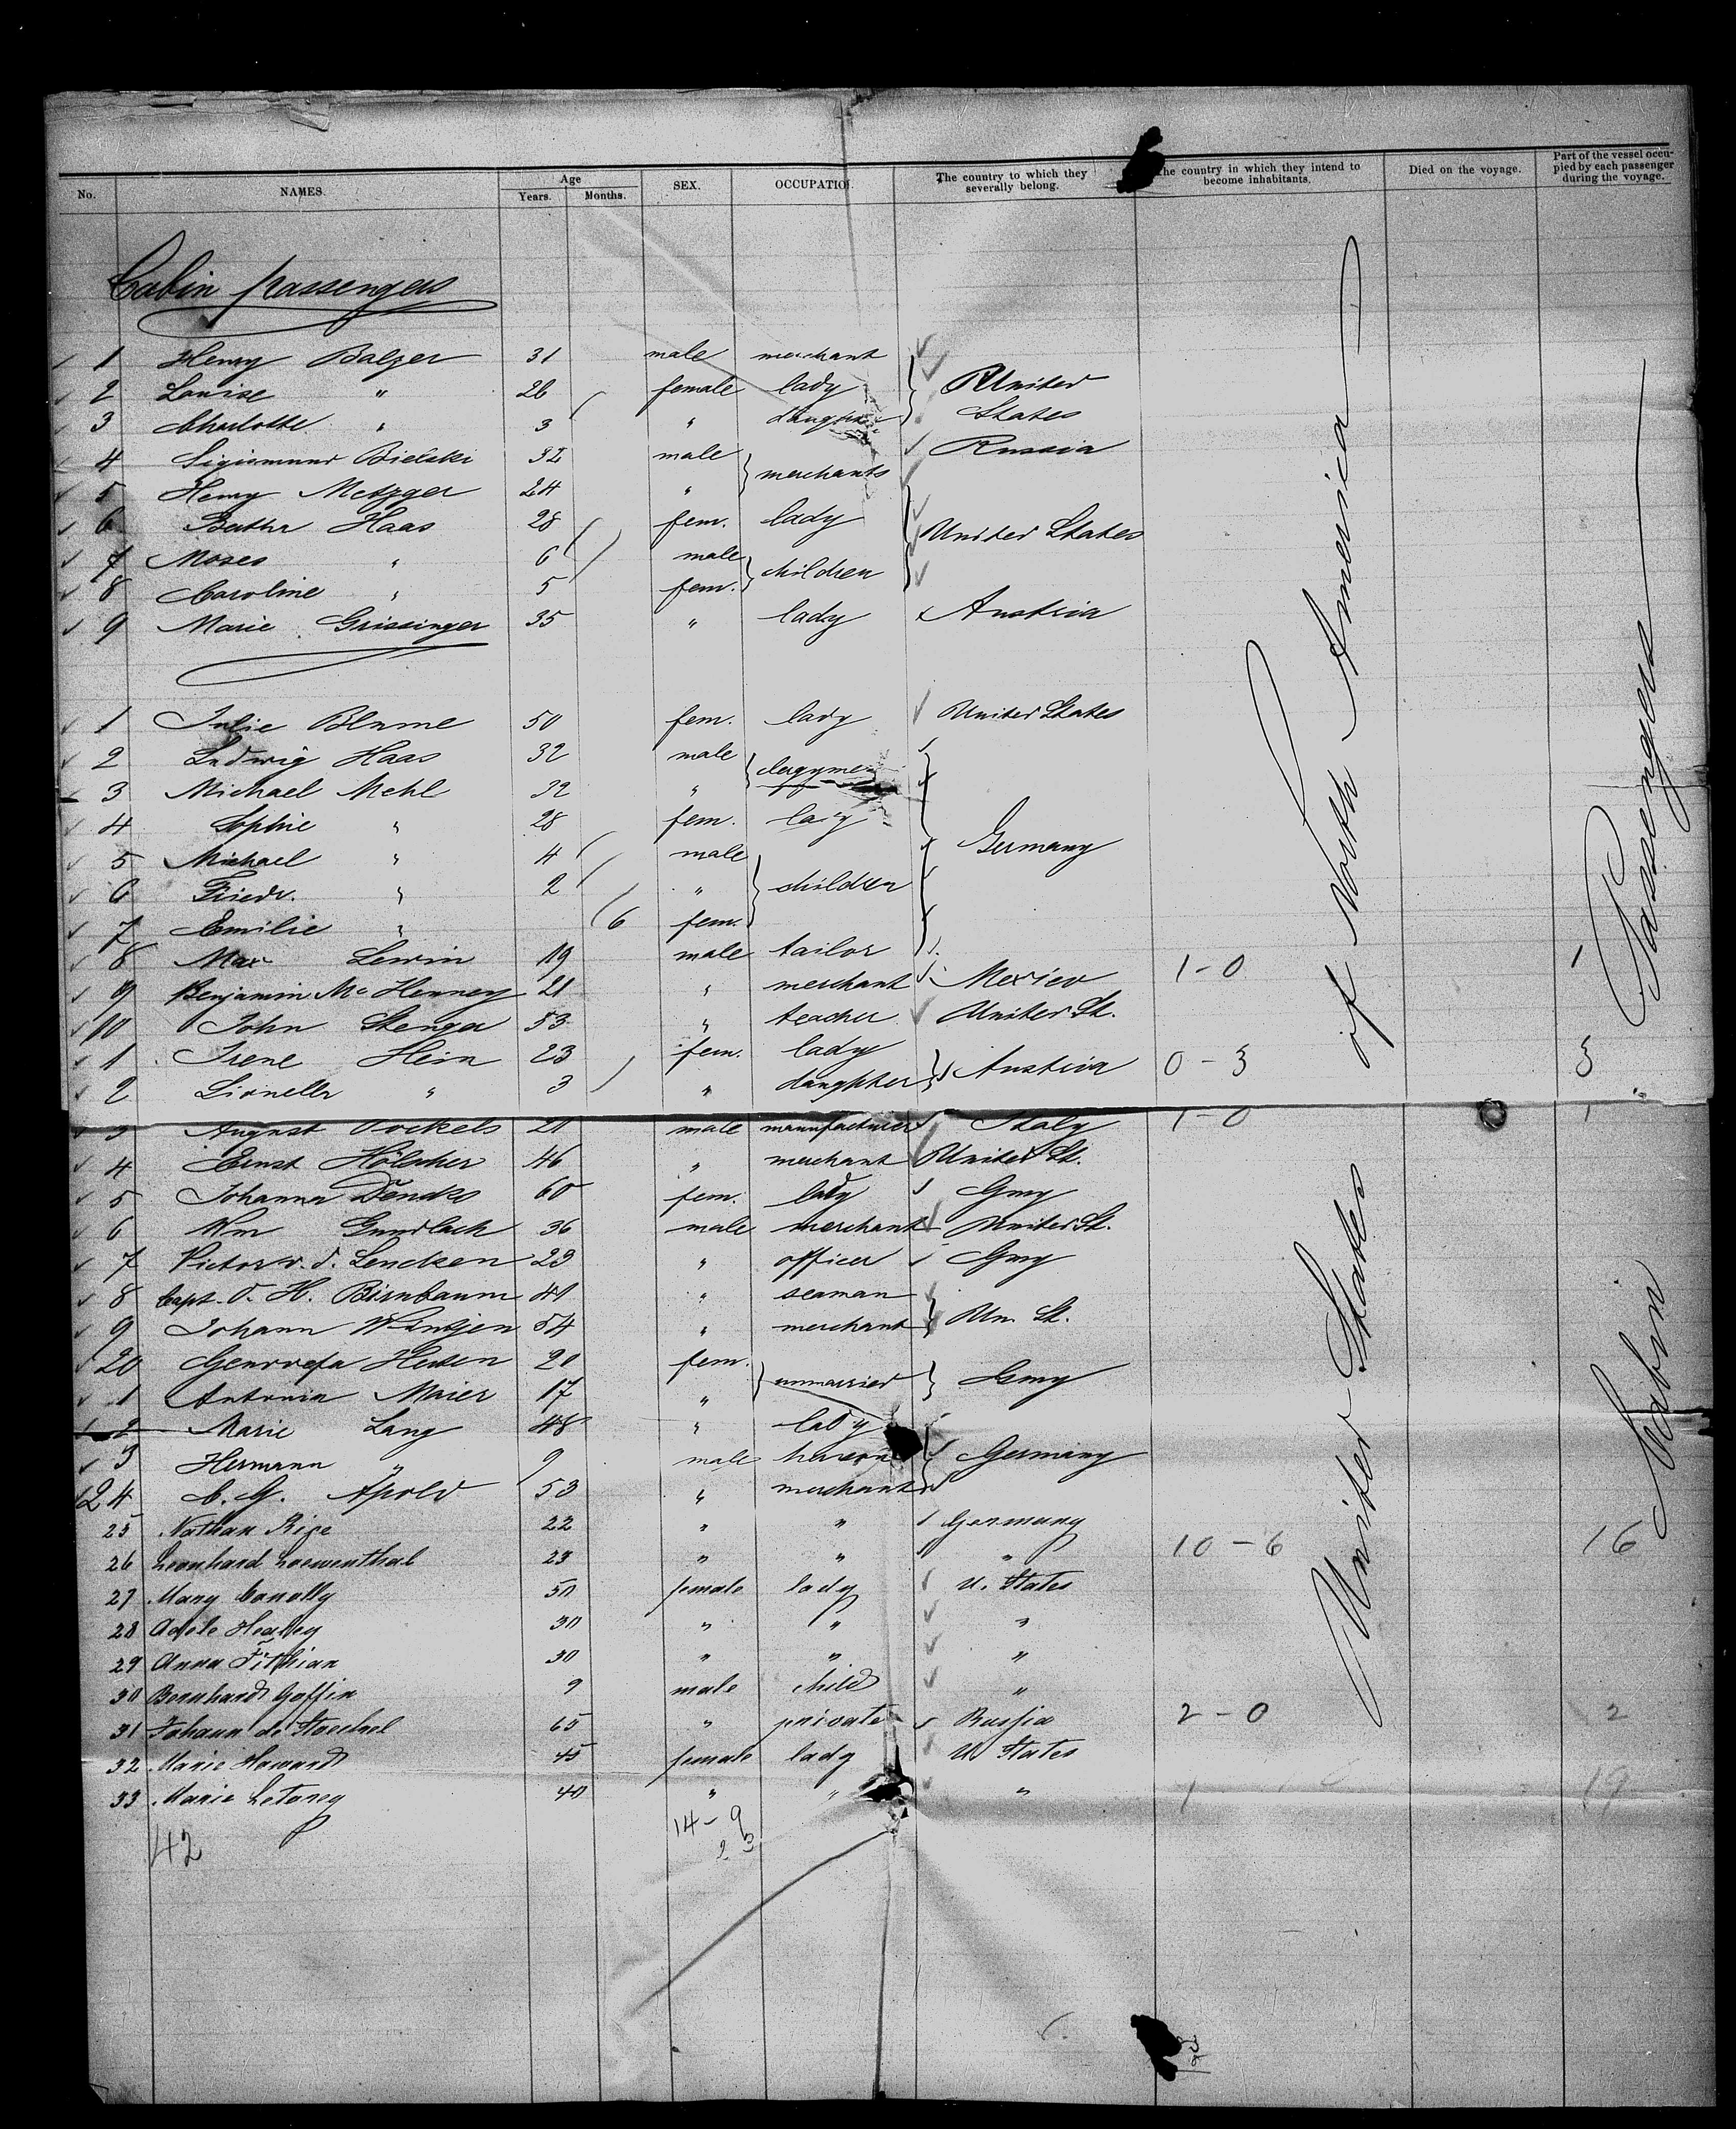 No. NAMES. Age Years. Months. SEX. OCCUPATIO The country to which they severally belong. he country in which they intend to become inhabitants. Died on the voyage. Part of the vessel occupied by each passenger during the voyage.
Cabin passengers
1 Henry Balzer 31 male merchant
2 Louise " 26 female lady United
3 Charlotte " 3 " States
4 Sigismund Bielski 32 male merchants Russia
5 Henry Metzger 24 "
6 Bertha Haas 28 fem. lady United States
7 Moses " 6 male children
8 Caroline " 5 fem.
9 Marie Grissinger 35 " lady Austria
1 Julie Blume 50 fem. lady United States
2 Ludwig Haas 32 male clergyme
3 Michael Mehl 32 "
4 Sophie " 28 fem. lady
5 Michael " 4 male Germany
6 Friedr. " 2 " children
7 Emilie " 6 fem.
8 Max Lewin 19 male tailor
9 Benjamin Mc Henney 21 " merchant Mexico 1-0 1
10 John Stenger 53 " teacher United St.
1 Irene Hein 23 fem. lady Austria 0-3 3
2 Lionella " 3 " daughter
3 August Pockels 21 male manufacturer Italy 1-0 1
4 Ernst Hölscher 46 " merchant United St.
5 Johanna Dencks 60 fem. lady Gmy
6 Wm Gundlach 36 male merchant United St.
7 Victor v. d. Lencken 23 " officer Gmy
8 Capt. d. H. Birnbaum 41 " seaman Un. St.
9 Johann Wintjen 54 " merchant
20 Genovefa 20 fem. unmarried Gmy
1 Antonia Maier 17 "
2 Marie Lang 48 " lady
3 Hermann " 9 male Germany
24 C. G. Apold 53 " merchant
25 Nathan Rice 22 " " Germany
26 Leonhard Loewenthal 23 " " " 10-6 16
27 Mary Conolly 50 female lady U. States
28 Adele Healey 30 " " "
29 Anna Fithian 30 " " "
30 Bernhard Goffin 9 male child "
31 Johann de Stoeckel 65 " private Russia 2-0 2
32 Marie Howard 45 female lady U. States
33 Marie Letorey 40 " " " 19
42 14-9
23
United States of North America
Cabin Passengers